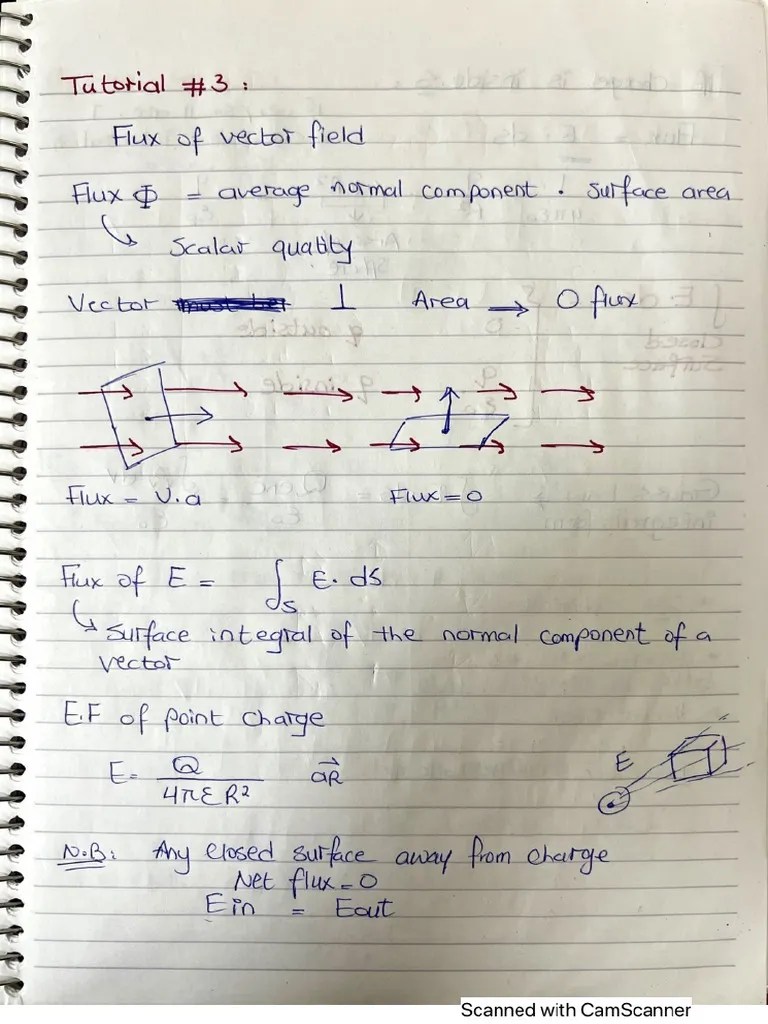 Tutorial #3:
Flux of vector field
Flux Φ = average normal component . Surface area
Scalar quatity
Vector ⊥ Area → 0 flux
Flux = v.a
Flux = 0
Flux of E = ∫s E. ds
Surface integral of the normal component of a
vector
E.F of point charge
E = Q / 4πεR² aR
E
N.B: Any closed surface away from charge
Net flux = 0
Ein = Eout
Scanned with CamScanner